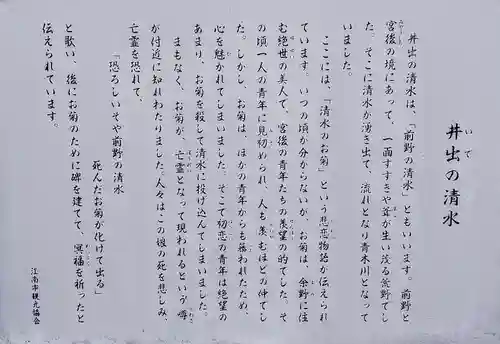 井出の清水
井出の清水は、「前野の清水」ともいいます。前野と
宮後の境にあって、一面すすきや葦が生い茂る荒野でし
た。そこに清水が湧き出て、流れとなり青木川となって
いました。
ここには、「清水のお菊」という悲恋物語が伝えられ
ています。いつの頃か分からないが、お菊は、余野に住
む絶世の美人で、宮後の青年たちの羨望の的でした。そ
の頃一人の青年に見初められ、人も羨むほどの仲でし
た。しかし、お菊は、ほかの青年からも慕われたため、
心を魅かれてしまいました。そこで初恋の青年は絶望の
あまり、お菊を殺して清水に投げ込んでしまいました。
まもなく、お菊が、亡霊となって現われるという噂
が付近に知れわたりました。人々はこの娘の死を悲しみ、
亡霊を恐れて、
「恐ろしいそや前野の清水
死んだお菊が化けて出る」
と歌い、後にお菊のために碑を建てて、冥福を祈ったと
伝えられています。
江南市観光協会